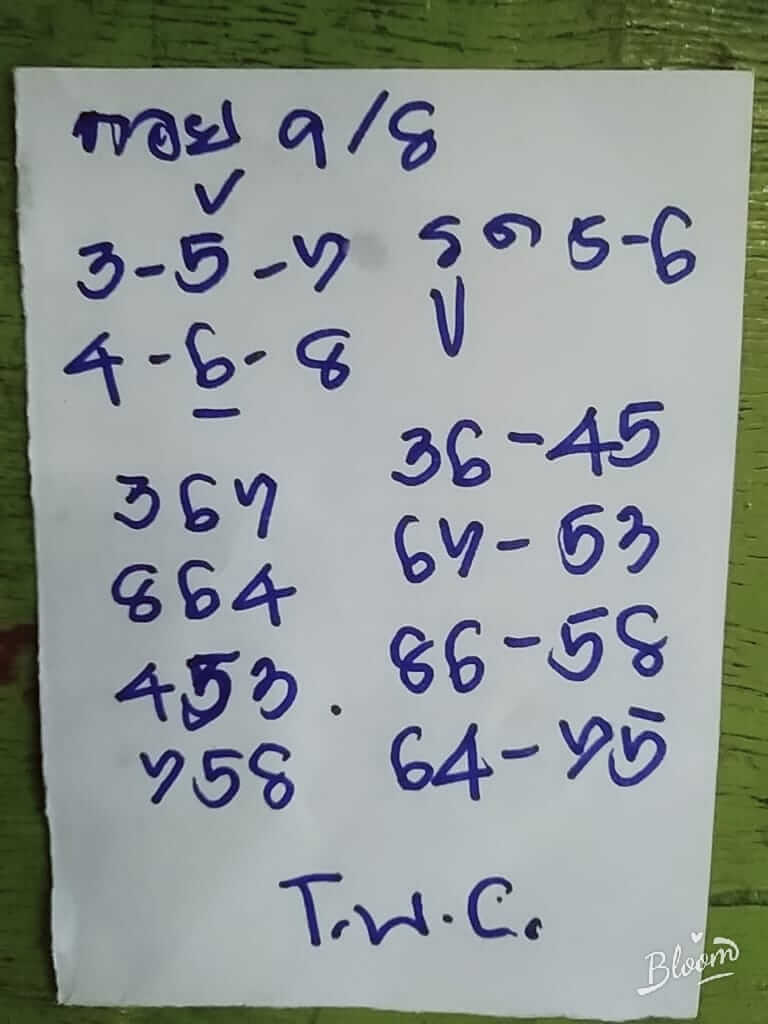 ฮอยปู 9/8
3-5-7 รูด 5-6
4-6-8
367 36-45
864 67-53
453 86-58
758 64-75
T.W.C.
Bloom